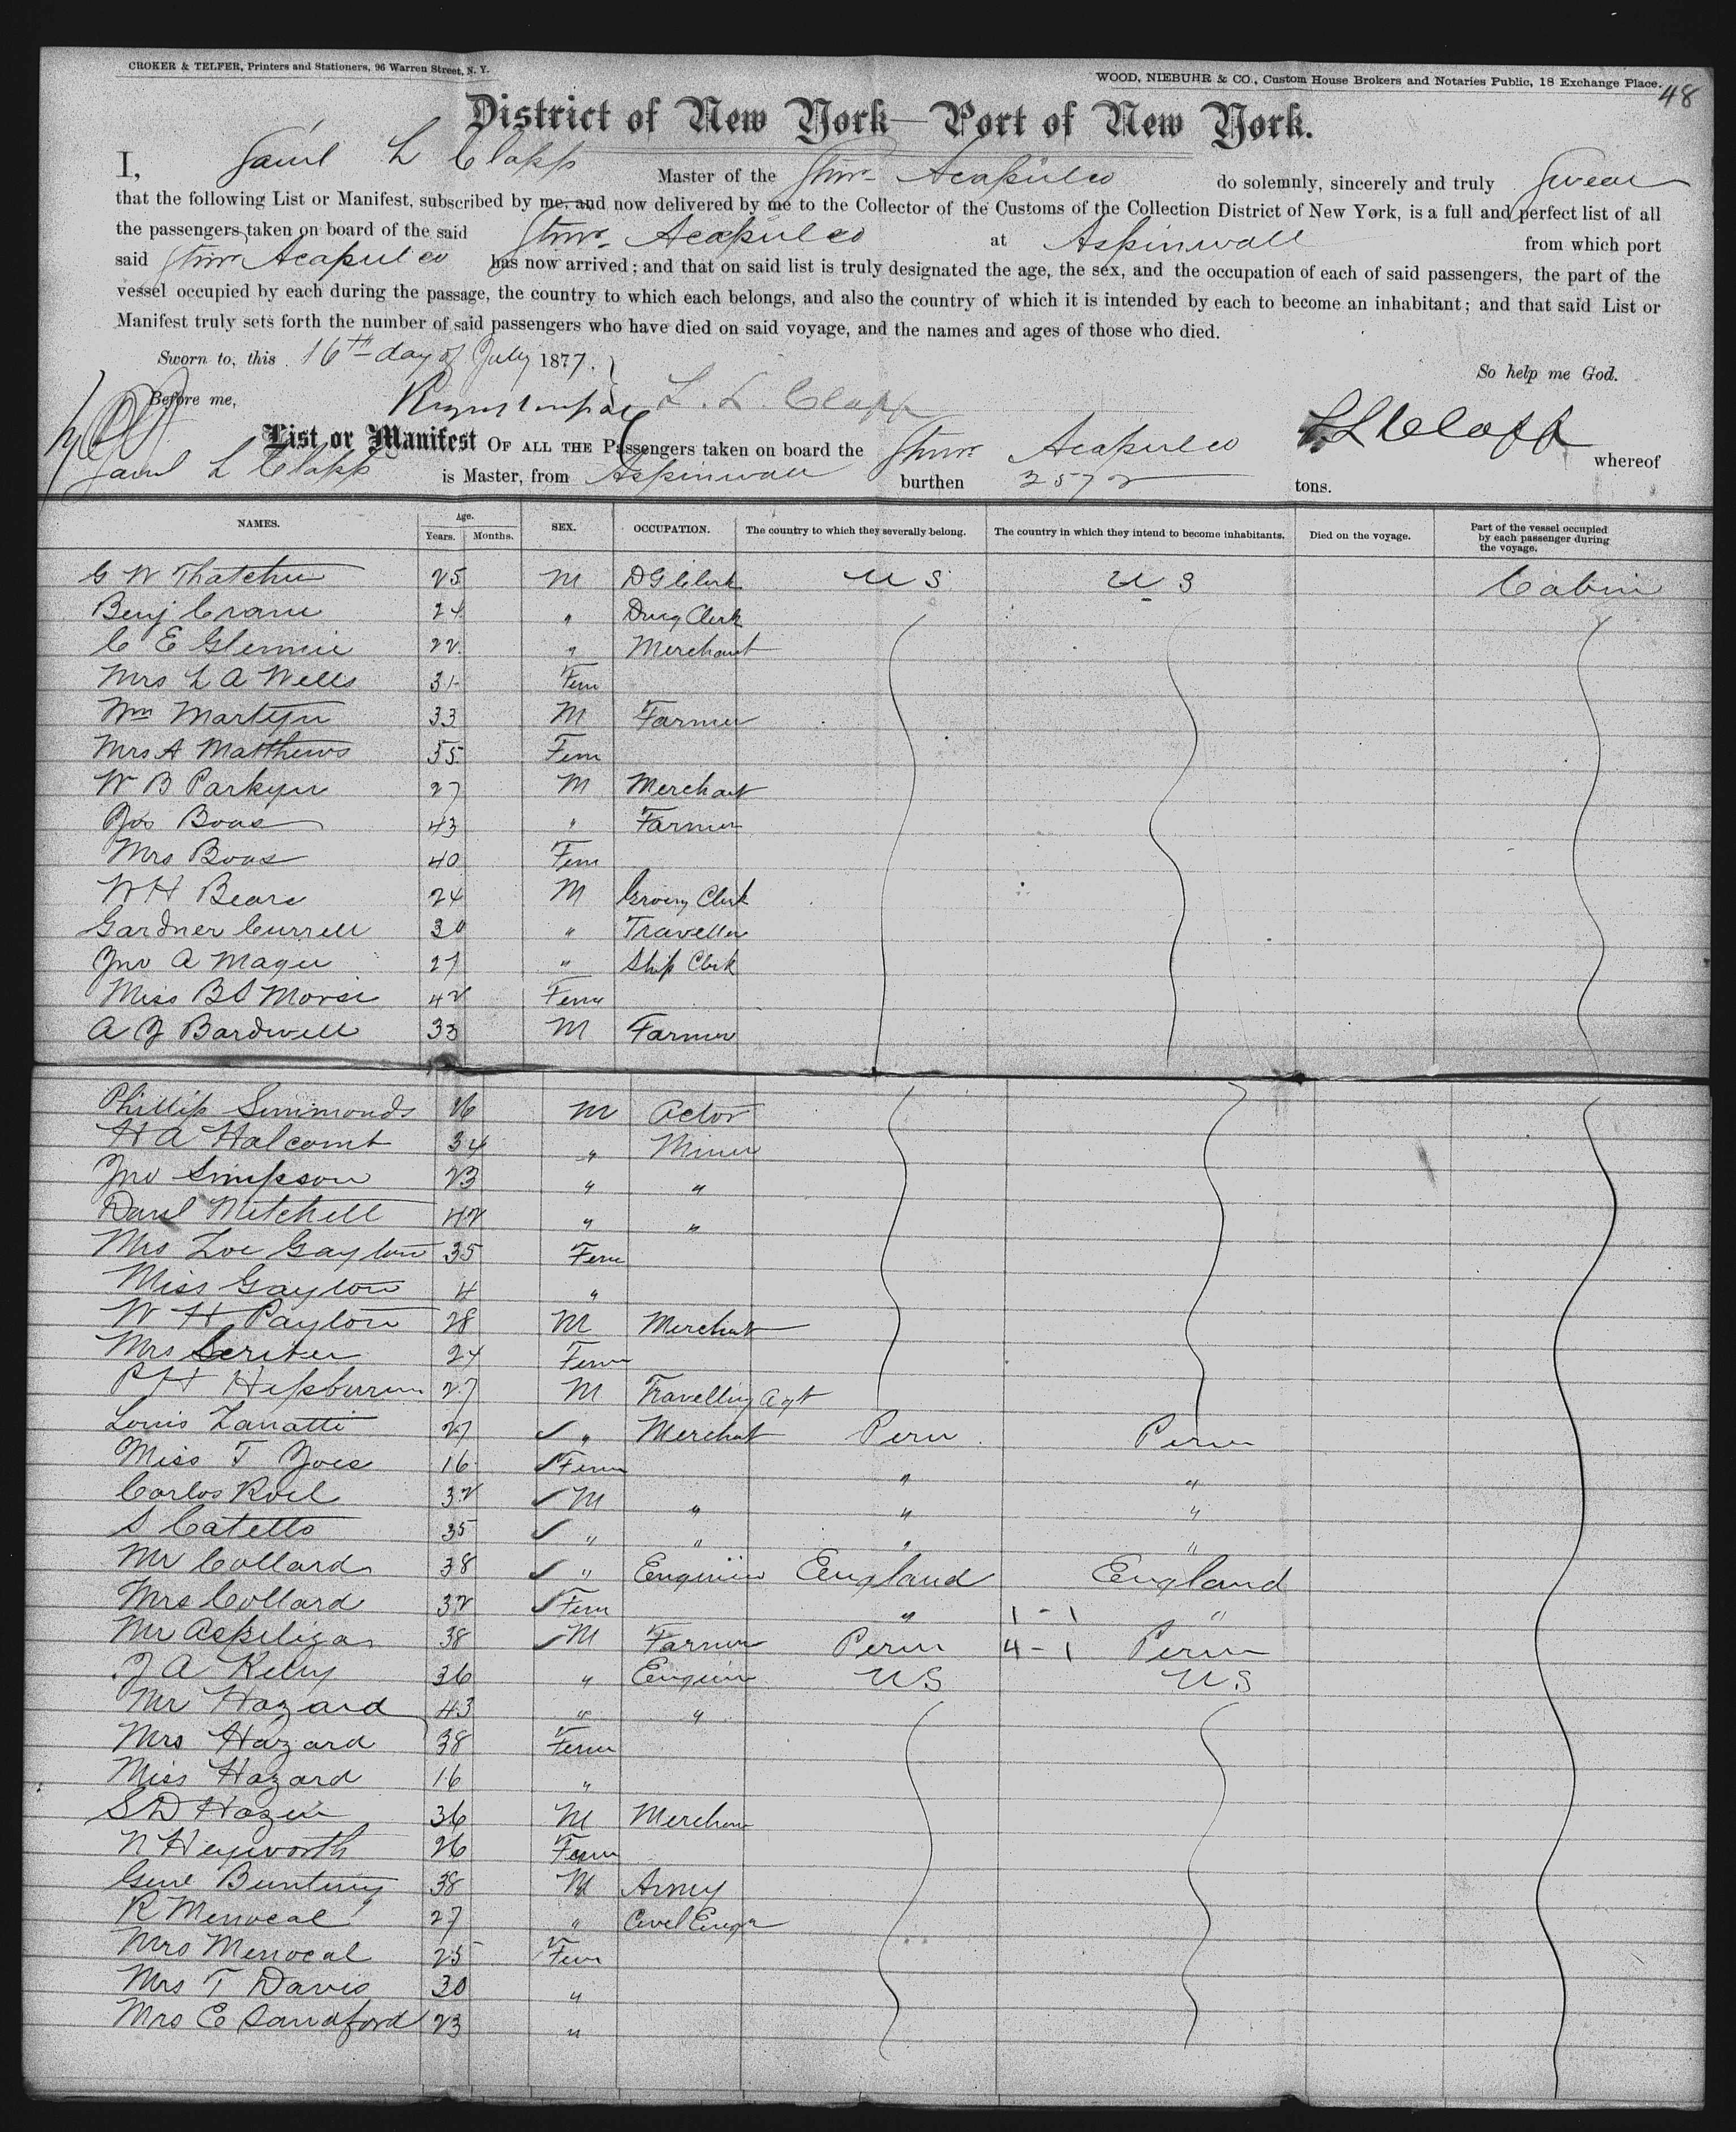 CROKER & TELFER, Printers and Stationers, 96 Warren Street, N. Y.
WOOD, NIEBUHR & CO., Custom House Brokers and Notaries Public, 18 Exchange Place.
48
District of New York—Port of New York.
I, Saml L Clapp Master of the Stmr Acapulco do solemnly, sincerely and truly Swear
that the following List or Manifest, subscribed by me, and now delivered by me to the Collector of the Customs of the Collection District of New York, is a full and perfect list of all
the passengers taken on board of the said Stmr Acapulco at Aspinwall from which port
said Stmr Acapulco has now arrived; and that on said list is truly designated the age, the sex, and the occupation of each of said passengers, the part of the
vessel occupied by each during the passage, the country to which each belongs, and also the country of which it is intended by each to become an inhabitant; and that said List or
Manifest truly sets forth the number of said passengers who have died on said voyage, and the names and ages of those who died.
Sworn to, this 16th day of July 1877.
So help me God.
Before me, L. L. Clapp
S L Clapp
List or Manifest OF ALL THE Passengers taken on board the Stmr Acapulco whereof
Saml L Clapp is Master, from Aspinwall burthen 2572 tons.
NAMES. Age. Years. Months. SEX. OCCUPATION. The country to which they severally belong. The country in which they intend to become inhabitants. Died on the voyage. Part of the vessel occupied by each passenger during the voyage.
G W Thatcher 25 M DG Clerk U S U S Cabin
Benj Crane 24 " Drug Clerk
C E Glennie 22 " Merchant
Mrs L A Wells 31 Fem
Wm Martyn 33 M Farmer
Mrs A Matthews 55 Fem
W B Parkyn 27 M Merchant
Jos Boas 43 " Farmer
Mrs Boas 40 Fem
W H Bears 24 M Grocery Clerk
Gardner Currell 30 " Traveller
Jno A Magee 27 " Ship Clerk
Miss B S Morse 42 Fem
A J Bardwell 33 M Farmer
Phillip Simmonds 26 M Actor
H A Halcomb 34 " Miner
Jno Simpson 23 " "
Danl Mitchell 42 " "
Mrs Zoe Gayton 35 Fem
Miss Gayton 4 "
W H Payton 28 M Merchant
Mrs 24 Fem
P H Hepburn 27 M Travelling Agt
Louis Zanatti 27 " Merchat Peru Peru
Miss T 16 Fem " "
Carlos Roel 32 M " " "
S Catello 35 " " " "
Mr Collard 38 " Engineer England England
Mrs Collard 32 Fem " 1-1 "
Mr 38 M Farmer Peru 4-1 Peru
J A Kelly 36 " Engineer U S U.S
Mr Hazard 43 " "
Mrs Hazard 38 Fem
Miss Hazard 16 "
S D Hazen 36 M Merchan
N Heyworth 26 Fem
Genl Bunting 38 M Army
R Menocal 27 " Civel Engr
Mrs Menocal 25 Fem
Mrs T Davis 30 "
Mrs E Sandford 23 "